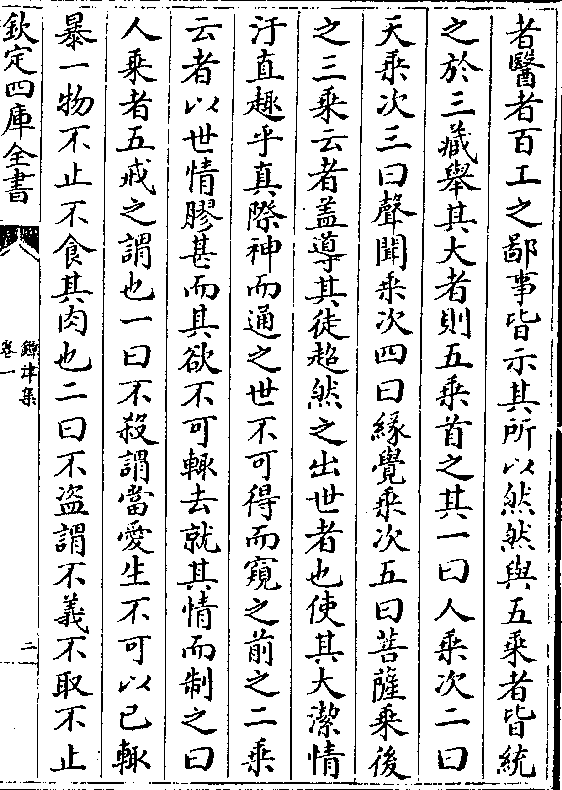 者醫者百工之鄙事皆示其所以然然與五乘者皆統
之於三藏舉其大者則五乘首之其一曰人乘次二曰
天乘次三曰聲聞乘次四曰緣覺乘次五曰菩薩乘後
之三乘云者蓋導其徒超然之出世者也使其大潔情
汙直趣乎真際神而通之世不可得而窺之前之二乘
云者以世情膠甚而其欲不可輙去就其情而制之曰
人乘者五戒之謂也一曰不殺謂當愛生不可以己輙
暴一物不止不食其肉也二曰不盜謂不義不取不止
欽定四庫全書
鐔津集
卷一
二